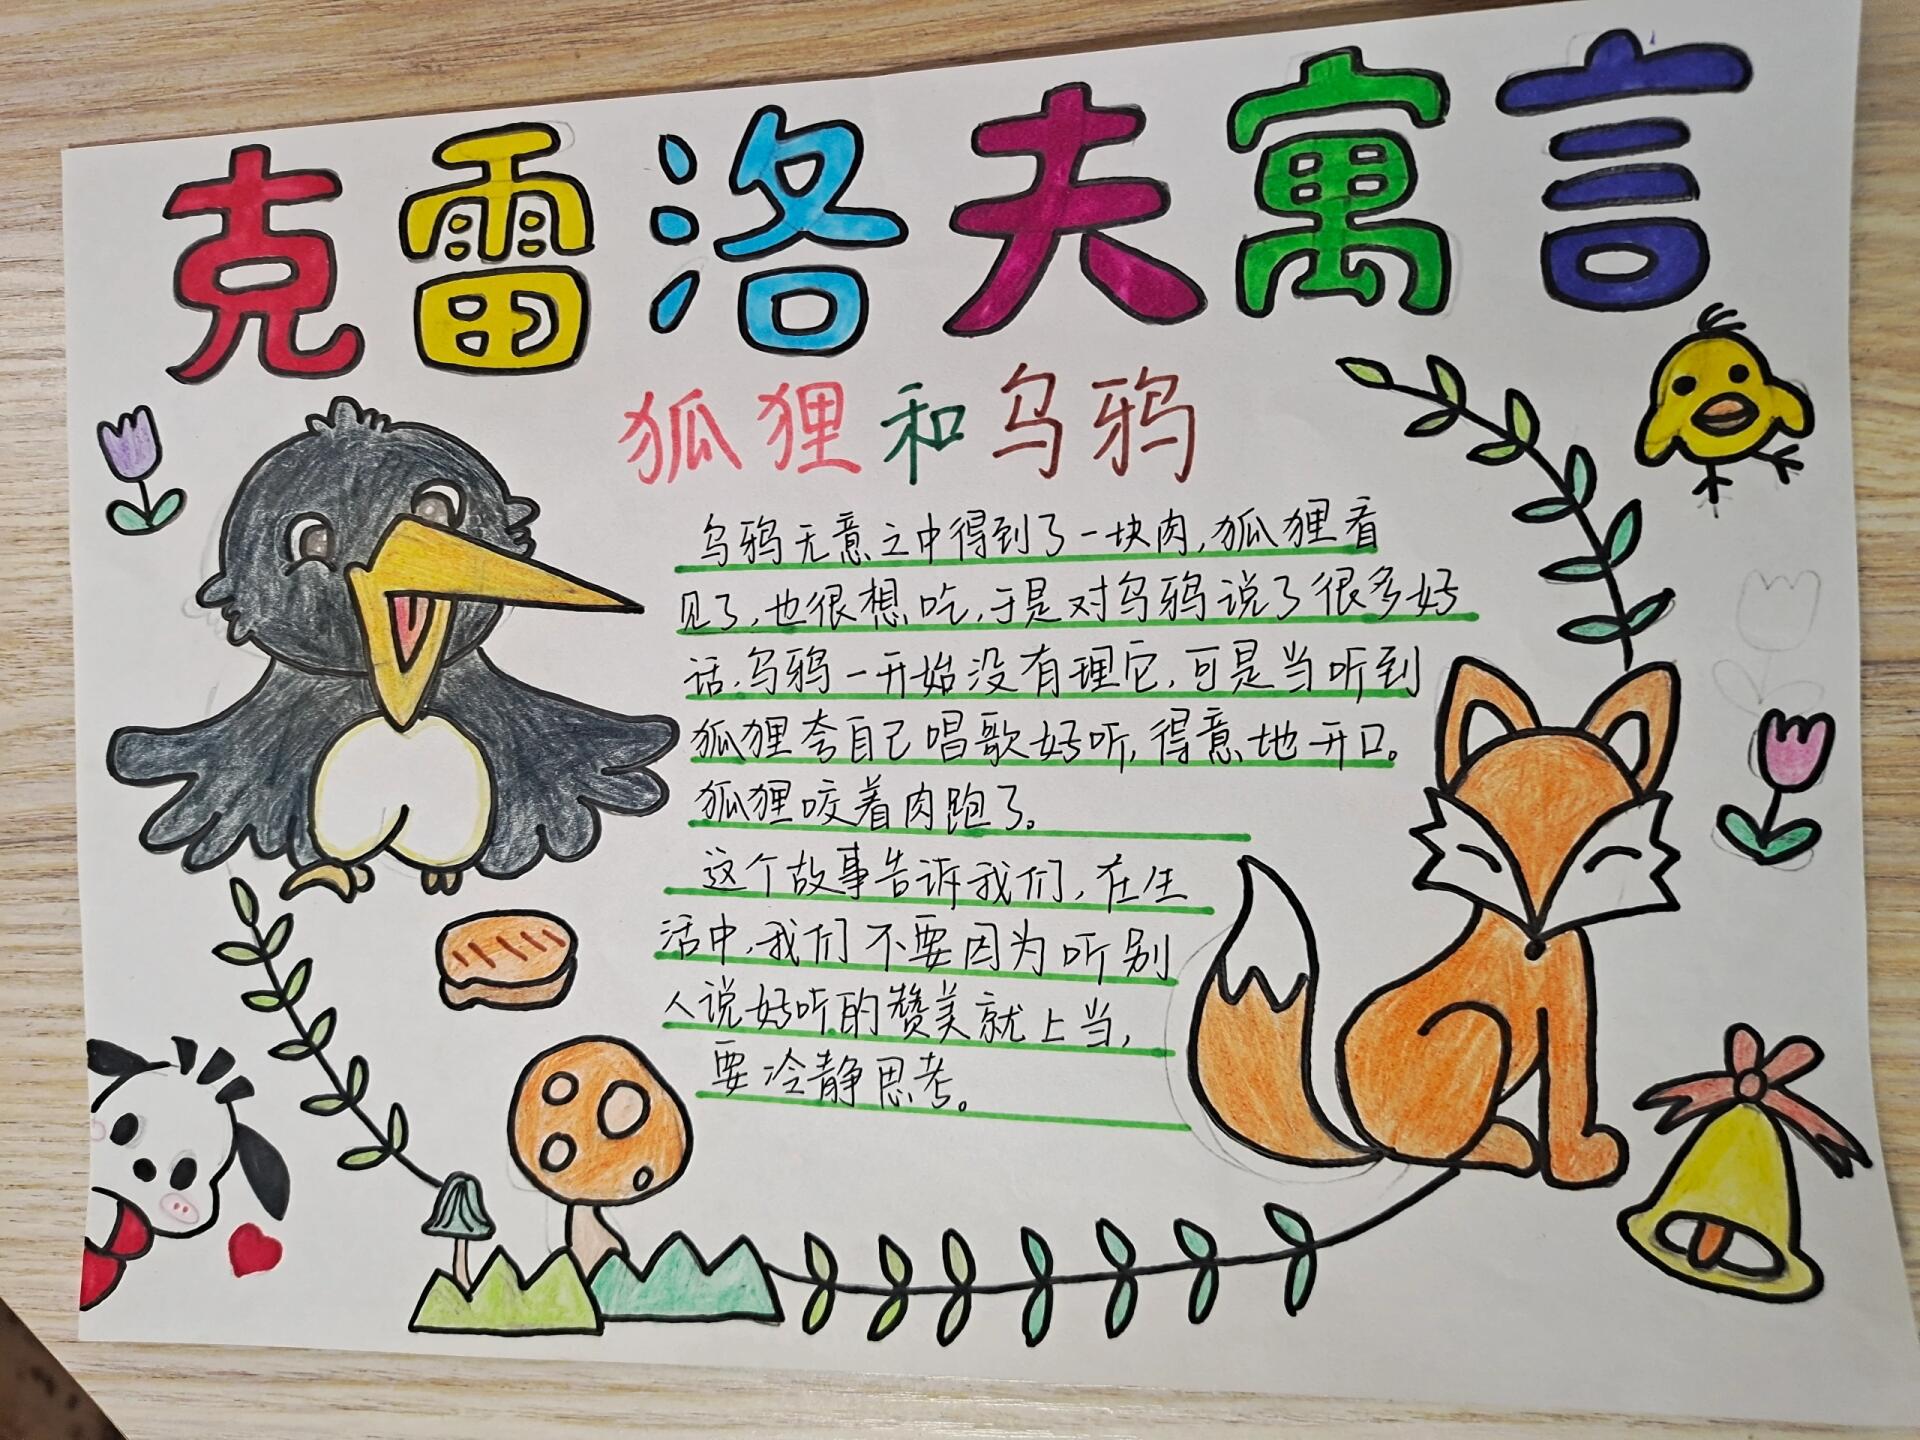 克雷洛夫寓言
狐狸和乌鸦
乌鸦无意之中得到了一块肉,狐狸看
见了,也很想吃,于是对乌鸦说了很多好
话.乌鸦一开始没有理它,可是当听到
狐狸夸自己唱歌好听,得意地开口。
狐狸咬着肉跑了。
这个故事告诉我们,在生
活中,我们不要因为听别
人说好听的赞美就上当,
要冷静思考。